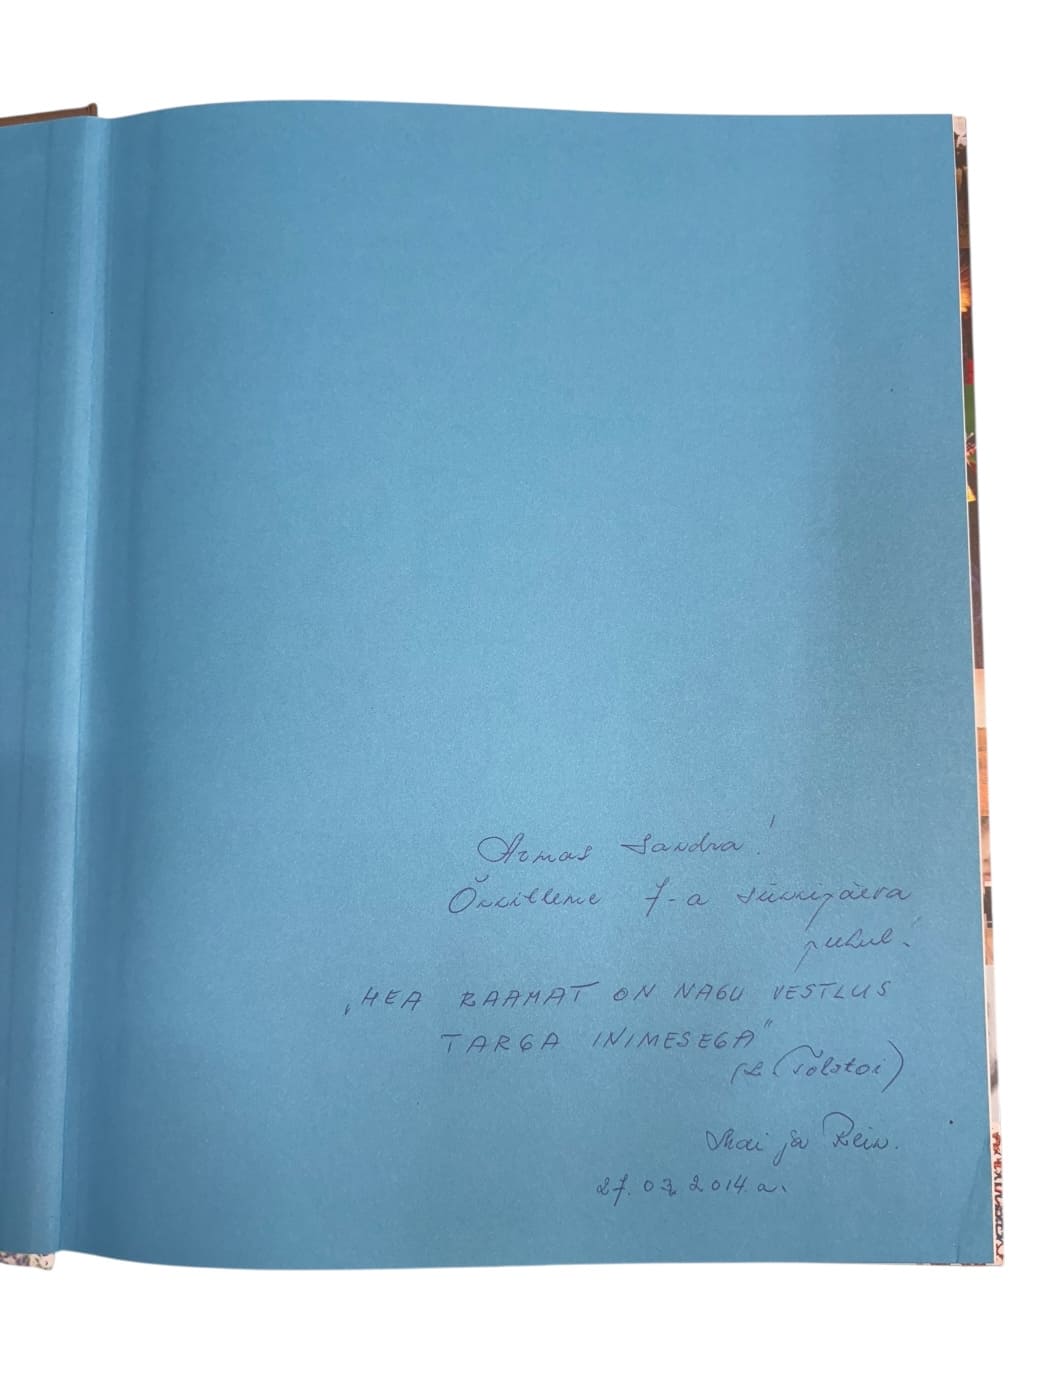 Armas Sandra!
Õnnitleme 7-a sünnipäeva
puhul!
„HEA RAAMAT ON NAGU VESTLUS
TARGA INIMESEGA"
(L. Tolstoi)
ja Rein.
27.03.2014.a.